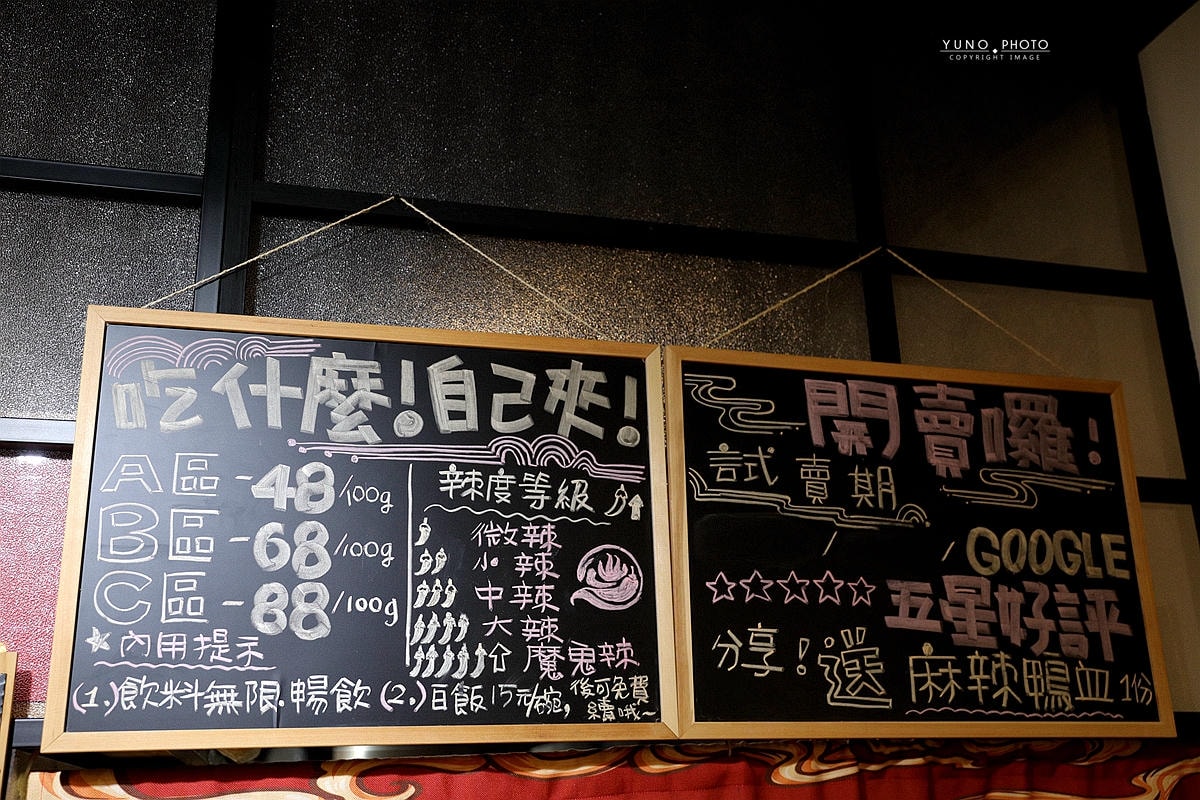 YUNO PHOTO
COPYRIGHT IMAGE
吃什麼!自己夾!
A區-48/100g
B區-68/100g
C區-88/100g
辣度等級
微辣
小辣
中辣
大辣
魔鬼辣
內用提示
(1.)飲料無限暢飲 (2.)白飯15元/碗,後可免費
續哦~
開賣囉!
試賣期
GOOGLE
五星好評
分享!送麻辣鴨血1份